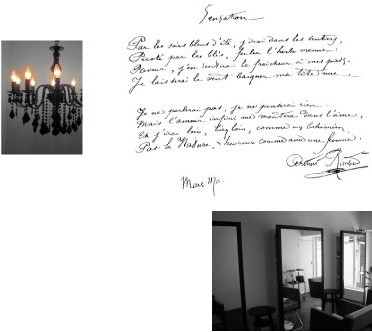 Sensation
Par les soirs bleus d'été, j'irai dans les sentiers,
Picoté par les blés, fouler l'herbe menue :
Rêveur, j'en sentirai la fraîcheur à mes pieds.
Je laisserai le vent baigner ma tête nue.
Je ne parlerai pas, je ne penserai rien
Mais l'amour infini me montera dans l'âme,
Et j'irai loin, bien loin, comme un bohémien,
Par la Nature, heureux comme avec une femme.
Arthur Rimbaud
Mars